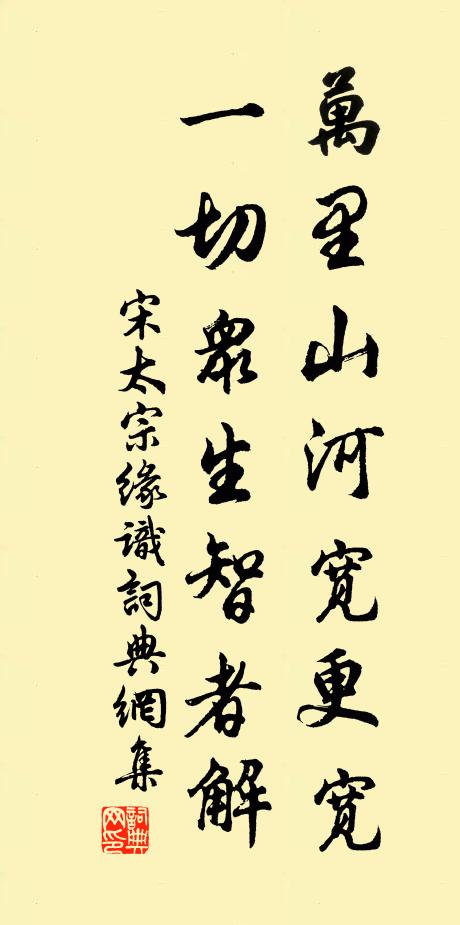 萬里山河寬更寬
一切眾生智者解
宋太宗緣識詞典網集
詞典网印